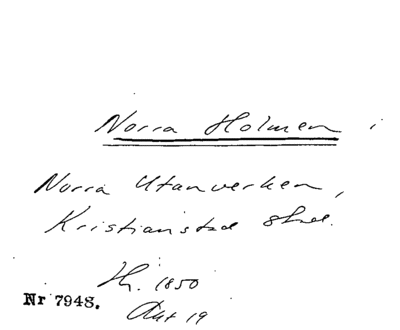 Norra Holmen i
Norra Utanverken,
Kristianstad
1850
Nr 7948.
Akt 19